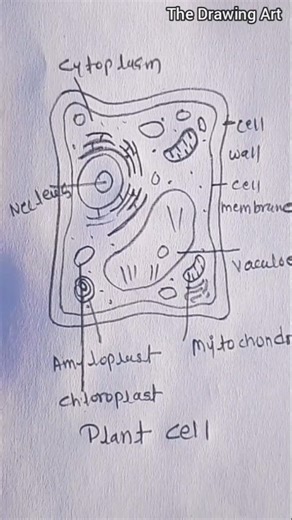 The Drawing Art
Cytoplasm
cell
wall
Nucleus
cell
membrane
Vacuole
Mytochondr
Amyloplast
Chloroplast
Plant cell